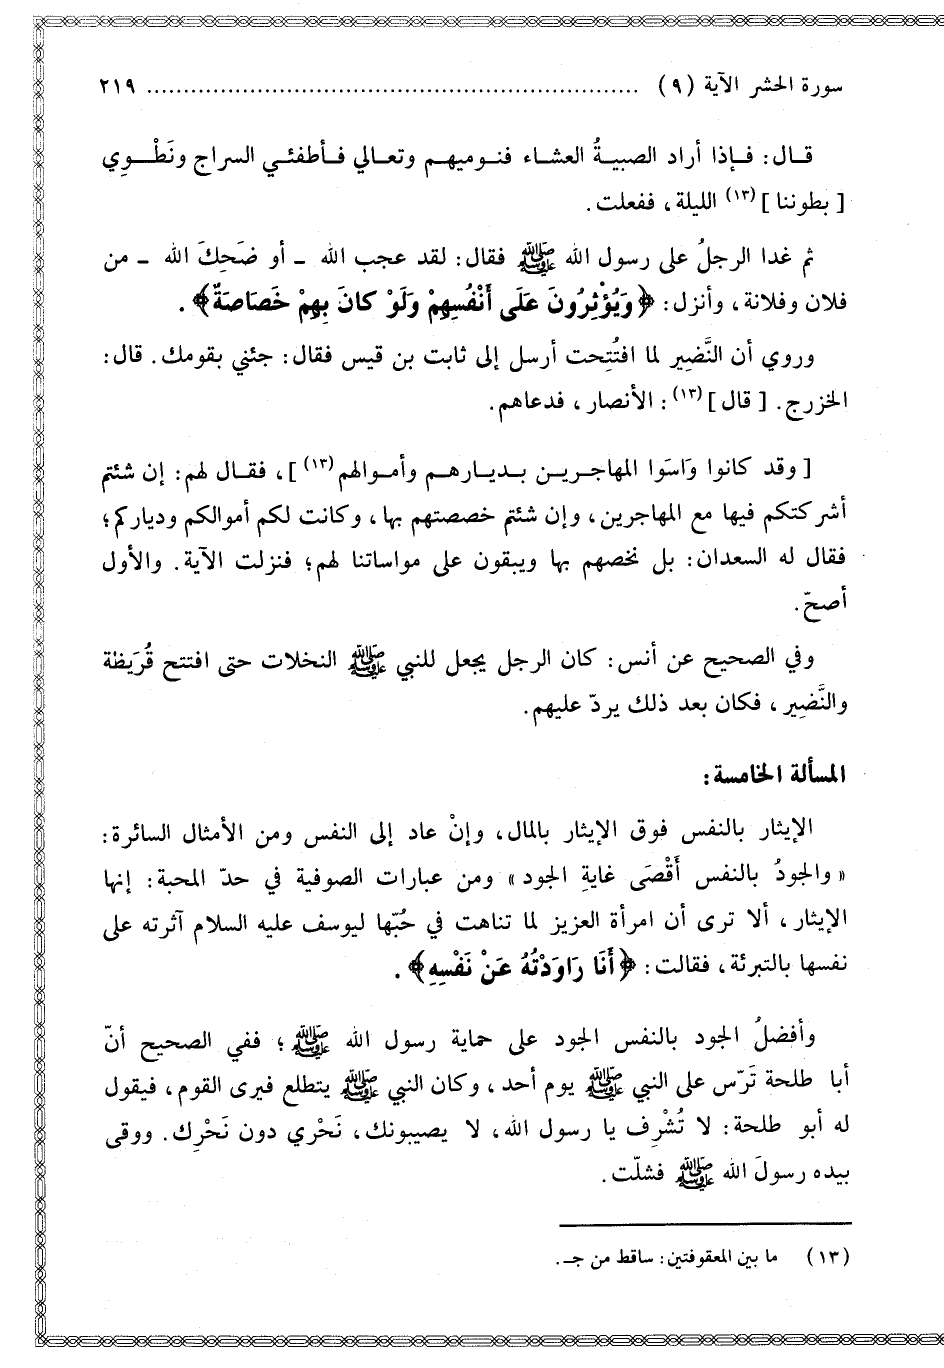 سورة الحشر الآية (٩) ................................................................ ٢١٩
قـال: فـإذا أراد الصبيـةُ العشـاء فنـوميهـم وتعـالي فـأطفئـي السراج ونَطْـوِي
[بطوننا](١٣) الليلة، ففعلت.
ثم غدا الرجلُ على رسول الله ﷺ فقال: لقد عجب الله ـ أو ضَحَكَ الله ـ من
فلان وفلانة، وأنزل: ﴿وَيُؤْثِرُونَ عَلَى أَنْفُسِهِمْ وَلَوْ كانَ بِهِمْ خَصَاصَةٌ﴾.
وروي أن النَّضِير لما افتُتِحت أرسل إلى ثابت بن قيس فقال: جئني بقومك. قال:
الخزرج. [قال](١٣): الأنصار، فدعاهم.
[وقد كانوا وَاسَوا المهاجريـن بـديـارهـم وأمـوالهم(١٣)]، فقـال لهم: إن شئتم
أشركتكم فيها مع المهاجرين، وإن شئتم خصصتهم بها، وكانت لكم أموالكم ودياركم؛
فقال له السعدان: بل نخصهم بها ويبقون على مواساتنا لهم؛ فنزلت الآية. والأول
أصحّ.
وفي الصحيح عن أنس: كان الرجل يجعل للنبي ﷺ النخلات حتى افتتح قُرَيظة
والنَّضِير، فكان بعد ذلك يردّ عليهم.
المسألة الخامسة:
الإيثار بالنفس فوق الإيثار بالمال، وإنْ عاد إلى النفس ومن الأمثال السائرة:
«والجودُ بالنفس أَقْصَى غايةِ الجود» ومن عبارات الصوفية في حدّ المحبة: إنها
الإيثار، ألا ترى أن امرأة العزيز لما تناهت في حُبّها ليوسف عليه السلام آثرته على
نفسها بالتبرئة، فقالت: ﴿أَنَا رَاوَدْتُهُ عَنْ نَفْسِهِ﴾.
وأفضلُ الجود بالنفس الجود على حماية رسول الله ﷺ؛ ففي الصحيح أنّ
أبا طلحة تَرّس على النبي ﷺ يوم أحد، وكان النبي ﷺ يتطلع فيرى القوم، فيقول
له أبو طلحة: لا تُشْرِف يا رسول الله، لا يصيبونك، نَحْري دون نَحْرِك. ووقى
بيده رسولَ الله ﷺ فشلّت.
(١٣) ما بين المعقوفتين: ساقط من جـ.